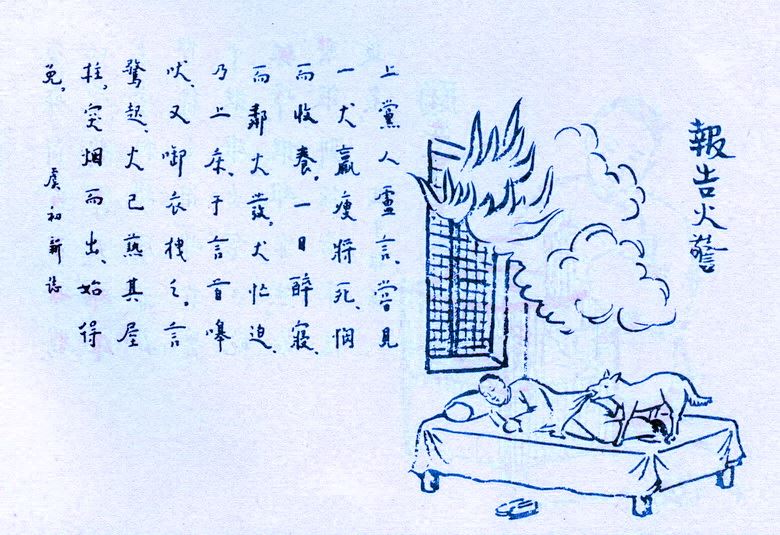 報告火警
上黨人盧言、嘗見
一犬羸瘦將死、憫
而收養。一日醉寢、
而鄰火發。犬忙迫、
乃上床、于言首嗥
吠、又啣衣拽之。言
驚起、火已熱其屋
柱。突烟而出、始得
免。
虞初新誌